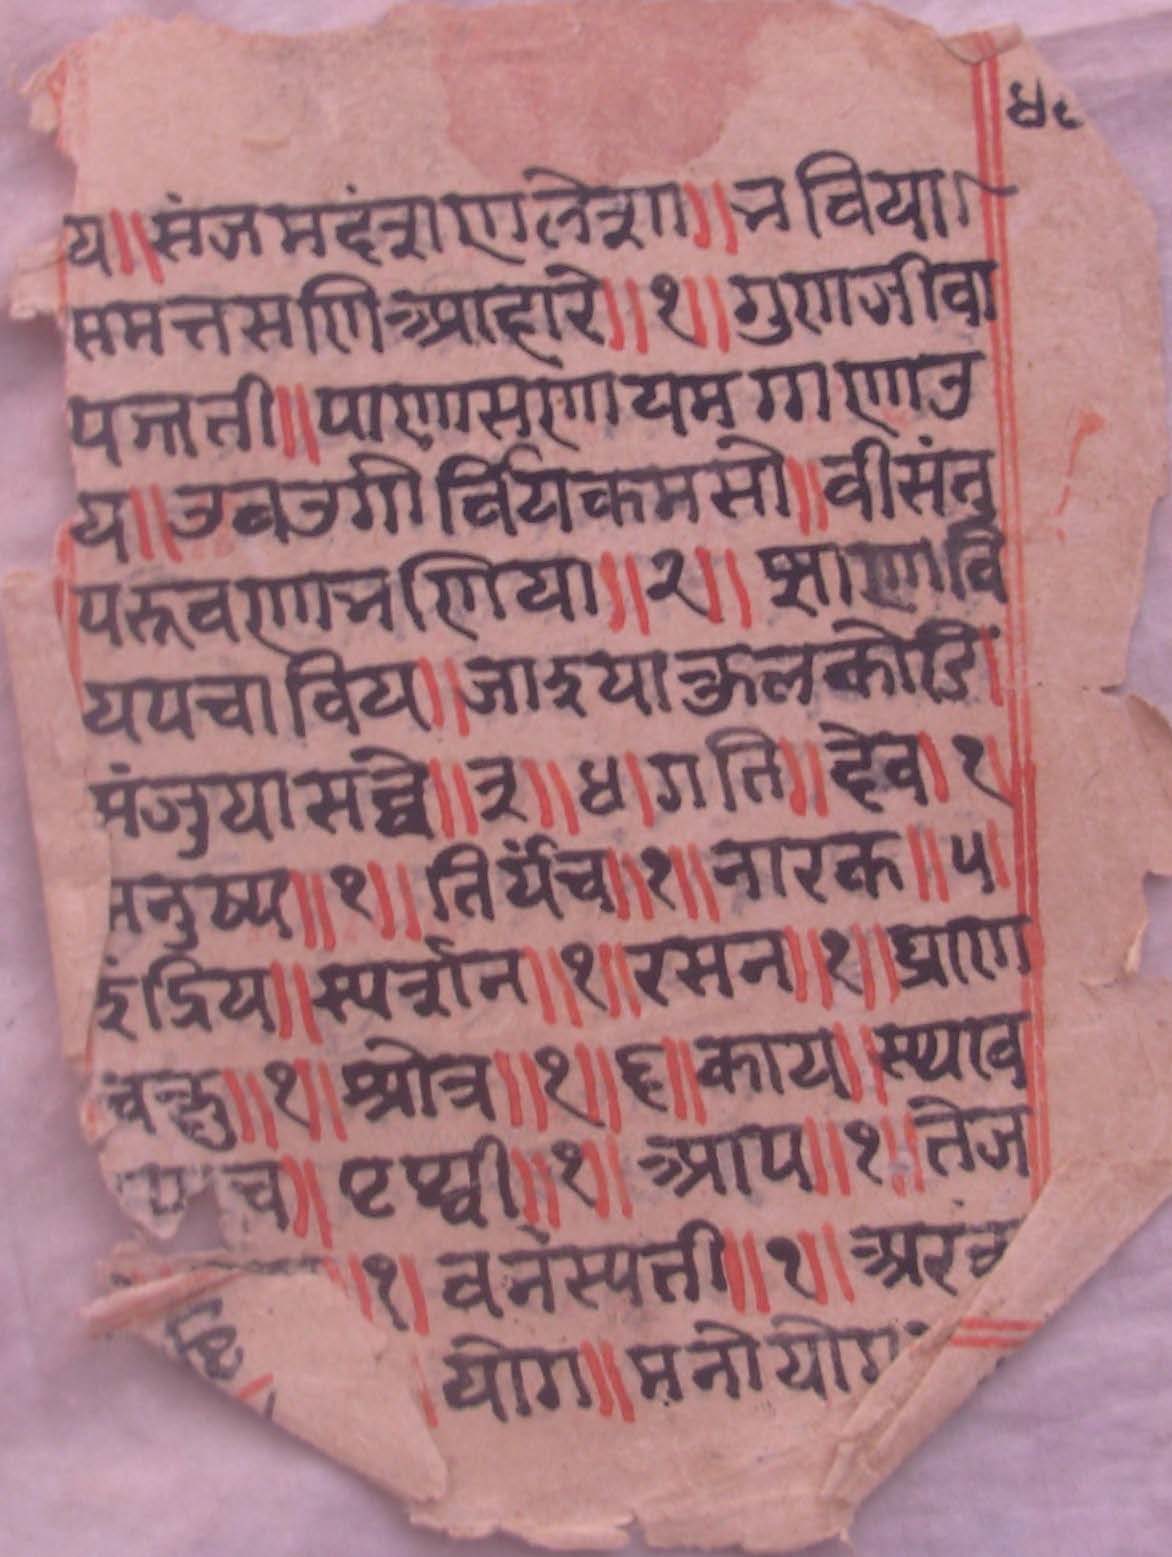 य॥संजमदंशणलेशा॥भविया
समत्तसणिआहारे॥१॥गुणजीवा
पज्जती॥पाणासणायमग्गणाउ
य॥उवउगोवियकमसो॥वीसंतु
परूवणाभणिया॥२॥झाणवि
ययचाविय॥जाइयाकुलकोडि
संजुयासव्वे॥३॥४।गति॥देव।१
मनुष्य॥१॥तिर्यंच॥१॥नारक॥५।
इंद्रिय॥स्पर्शन॥१॥रसन॥१॥घ्राण
चक्षु॥१॥श्रोत्र॥१॥६॥काय॥स्थाव
च॥पृथ्वी॥१॥आप॥१॥तेज
॥१॥वनस्पत्ती॥१॥
योग॥मनोयोग